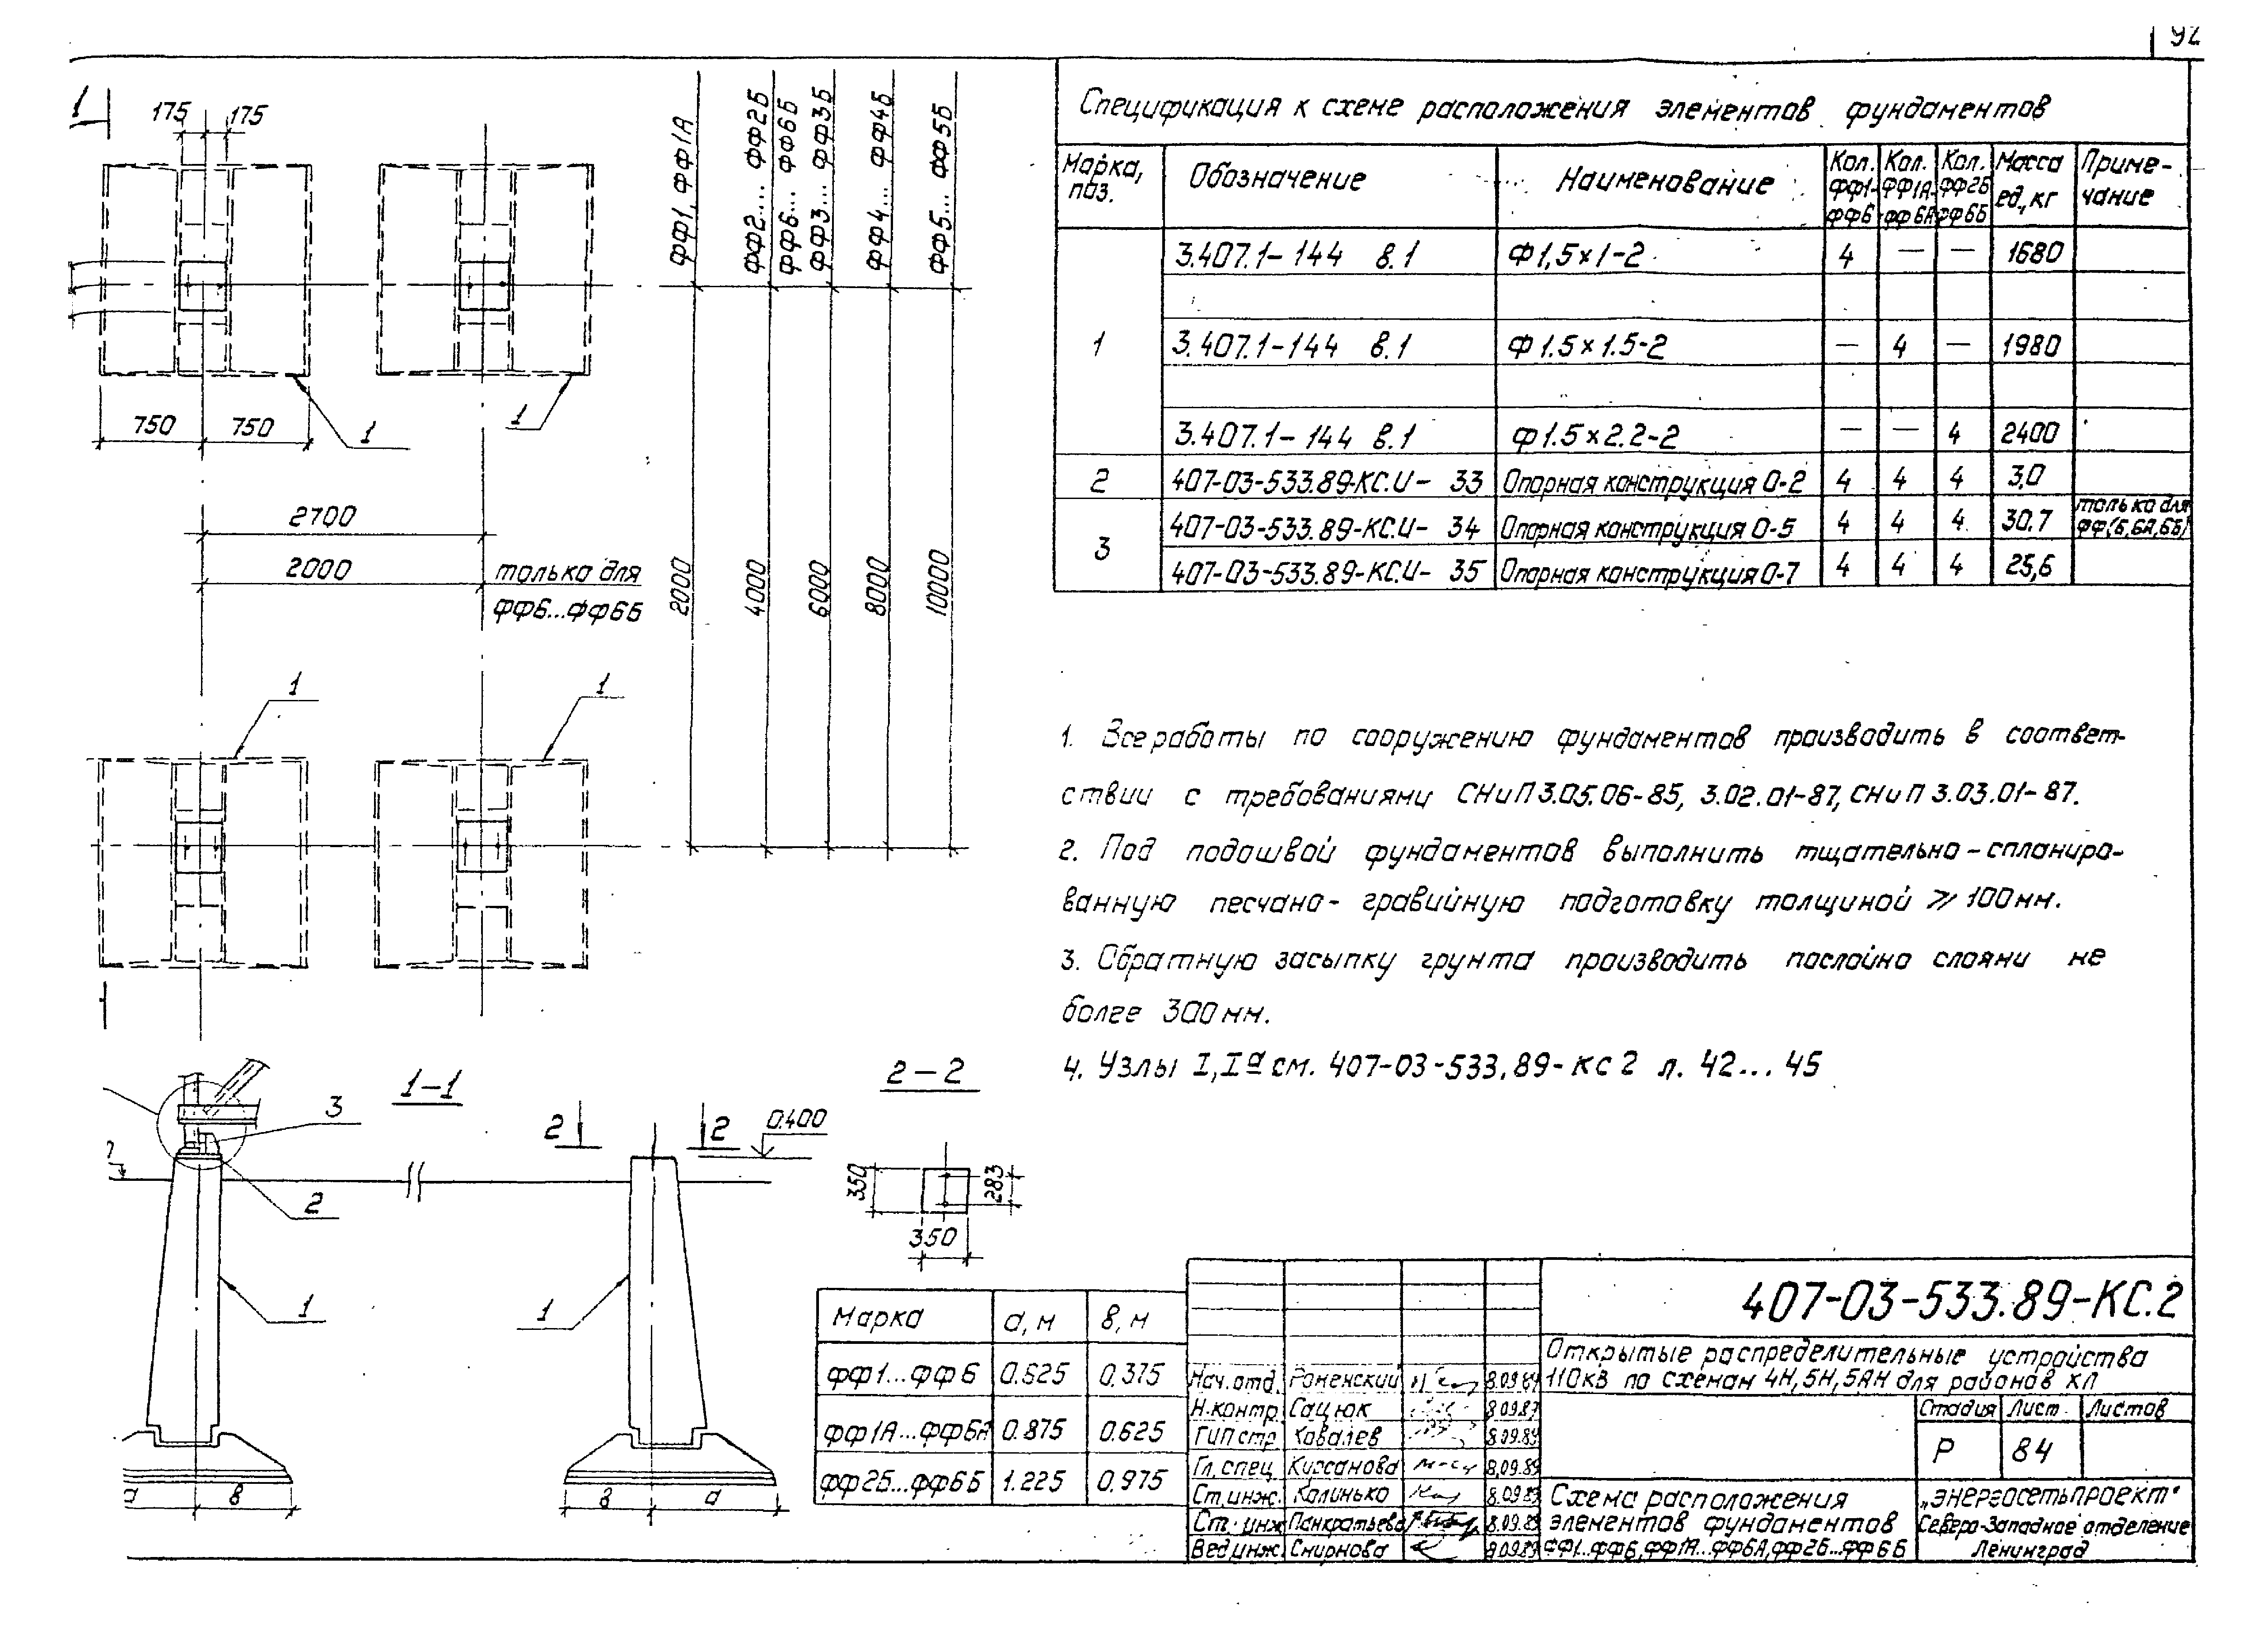 92
Спецификация к схеме расположения элементов фундаментов
Марка, поз.
Обозначение
Наименование
Кол. ФФ1-ФФ6
Кол. ФФ1А-ФФ6А
Кол. ФФ2Б ФФ6Б
Масса ед., кг
Приме-чание
1
3.407.1-144 в.1 Ф1,5×1-2 4 — — 1680
3.407.1-144 в.1 Ф1.5×1.5-2 — 4 — 1980
3.407.1-144 в.1 Ф1.5×2.2-2 — — 4 2400
2 407-03-533.89-КС.И- 33 Опорная конструкция О-2 4 4 4 3,0
3 407-03-533.89-КС.И- 34 Опорная конструкция О-5 4 4 4 30,7 только для ФФ(6,6А,6Б)
407-03-533.89-КС.И- 35 Опорная конструкция О-7 4 4 4 25,6
1
175 175
ФФ1, ФФ1А
ФФ2... ФФ2Б
ФФ6... ФФ6Б
ФФ3... ФФ3Б
ФФ4... ФФ4Б
ФФ5... ФФ5Б
750 750
1
1
2700
2000 только для
ФФ6...ФФ6Б
2000
4000
6000
8000
10000
1
1
1. Все работы по сооружению фундаментов производить в соответ-
ствии с требованиями СНиП 3.05.06-85, 3.02.01-87, СНиП 3.03.01-87.
2. Под подошвой фундаментов выполнить тщательно-спланиро-
ванную песчано-гравийную подготовку толщиной ⩾ 100мм.
3. Обратную засыпку грунта производить послойно слоями не
более 300мм.
4. Узлы I, Iа см. 407-03-533.89-КС2 л. 42... 45
1-1
3
2
1
1
2 2
0.400
в
в а
2-2
350
283
350
Марка а, м в, м
ФФ1...ФФ6 0.625 0.375
ФФ1А...ФФ6А 0.875 0.625
ФФ2Б...ФФ6Б 1.225 0.975
407-03-533.89-КС.2
Открытые распределительные устройства
110кВ по схемам 4Н, 5Н, 5АН для районов КЛ
Нач.отд. Роменский 8.09.89
Н.контр. Сацюк 8.09.89
ГИП стр. Ковалев 8.09.89
Гл.спец. Кирсанова 8.09.89
Ст.инж. Калинько 8.09.89
Ст.инж. Панкратьева 8.09.89
Вед.инж. Смирнова 8.09.89
Стадия Лист Листов
Р 84
Схема расположения
элементов фундаментов
ФФ1...ФФ6, ФФ1А...ФФ6А, ФФ2Б...ФФ6Б
„ЭНЕРГОСЕТЬПРОЕКТ"
Северо-Западное отделение
Ленинград